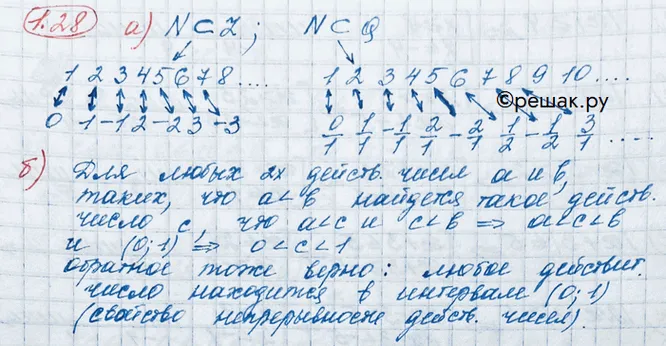 1.28 а) N⊂Z; N⊂Q
1 2 3 4 5 6 7 8 .... 1 2 3 4 5 6 7 8 9 10 ....
©решак.ру
0 1 -1 2 -2 3 -3 0/1 1/1 -1/1 2/1 -2/1 1/2 -1/2 3/1 .....
б) Для любых 2х действ. чисел a и b,
таких, что a<b найдется такое действ.
число c, что a<c и c<b ⇒ a<c<b
и (0;1) ⇒ 0<c<1
обратное тоже верно: любое действит.
число находится в интервале (0;1)
(свойство непрерывности действ. чисел).